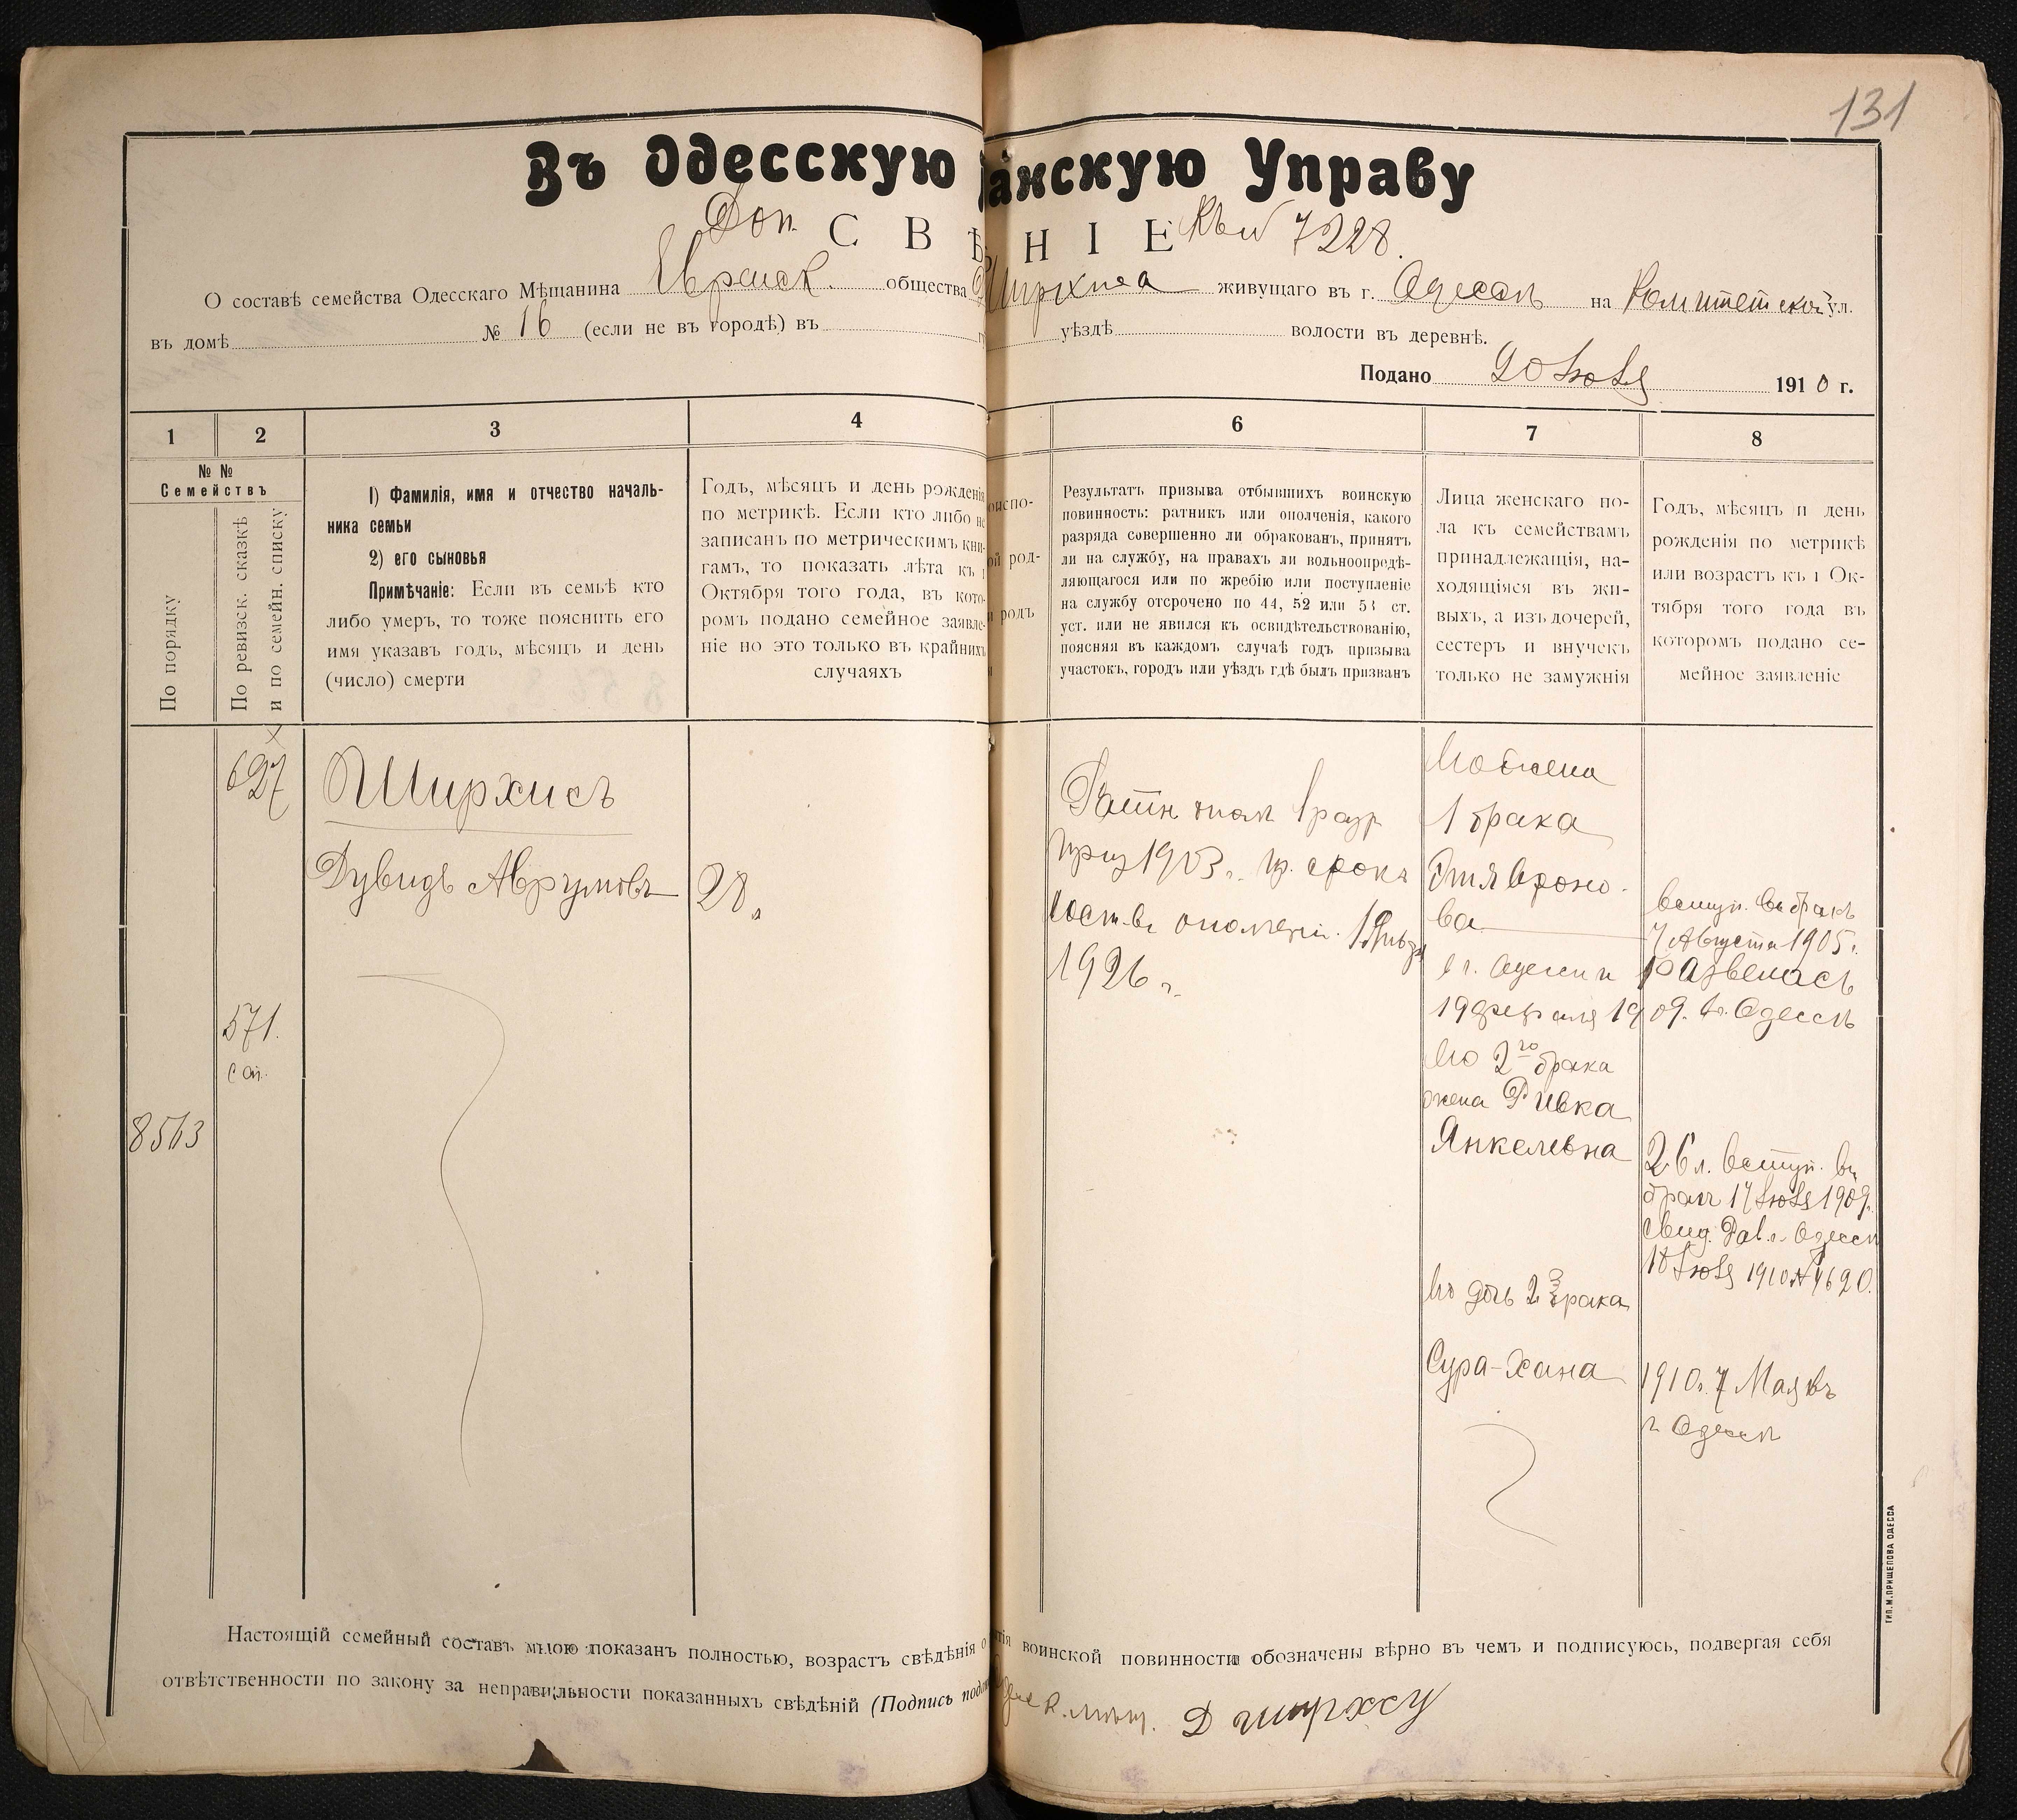 131
Въ Одесскую анскую Управу
Доп. С В Ѣ Н І Е Къ № 7228.
О составѣ семейства Одесскаго Мѣщанина Еврейск. общества Ширхиса живущаго въ г. Одессѣ на Комитетской ул.
въ домѣ № 16 (если не въ городѣ) въ уѣздѣ волости въ деревнѣ.
Подано 20 Іюля 1910 г.
1 2 3 4 6 7 8
№ №
Семействъ
По порядку
По ревизск. сказкѣ
и по семейн. списку
1) Фамилія, имя и отчество началь-
ника семьи
2) его сыновья
Примѣчаніе: Если въ семьѣ кто
либо умеръ, то тоже пояснить его
имя указавъ годъ, мѣсяцъ и день
(число) смерти
Годъ, мѣсяцъ и день рожденія
по метрикѣ. Если кто либо не
записанъ по метрическимъ кни-
гамъ, то показать лѣта къ 1
Октября того года, въ кото-
ромъ подано семейное заявле-
ніе но это только въ крайнихъ
случаяхъ
оиспо-
ой род-
и родъ
Результатъ призыва отбывшихъ воинскую
повинность: ратникъ или ополченія, какого
разряда совершенно ли обракованъ, принятъ
ли на службу, на правахъ ли вольноопредѣ-
ляющагося или по жребію или поступленіе
на службу отсрочено по 44, 52 или 53 ст.
уст. или не явился къ освидѣтельствованію,
поясняя въ каждомъ случаѣ годъ призыва
участокъ, городъ или уѣздъ гдѣ былъ призванъ
Лица женскаго по-
ла къ семействамъ
принадлежащія, на-
ходящіяся въ жи-
выхъ, а изъ дочерей,
сестеръ и внучекъ
только не замужнія
Годъ, мѣсяцъ и день
рожденія по метрикѣ
или возрастъ къ 1 Ок-
тября того года въ
которомъ подано се-
мейное заявленіе
627
571.
8563
Ширхисъ
Дувидъ Аврумовъ
28.
Ратн. опол. 1 разр.
приз. 1903 г. пр. срока
сост. въ ополченіи 1 Янв.
1926 г.
Его жена
1 брака
Этля Ароно-
ва
вступ. въ бракъ
7 Августа 1905 г.
въ г. Одессѣ и развелась
19 февраля 1909 г. въ Одессѣ
Его 2го брака
жена Ривка
Янкелевна
26 л. вступ. въ
бракъ 17 Іюля 1909 г.
свид. Рав. г. Одессы
18 Іюля 1910 № 4620.
Его дочь 2 брака
Сура-Хана
1910 г. 7 Мая въ
г. Одессѣ
Настоящій семейный составъ мною показанъ полностью, возрастъ свѣдѣнія о тія воинской повинности обозначены вѣрно въ чемъ и подписуюсь, подвергая себя
отвѣтственности по закону за неправильности показанныхъ свѣдѣній (Подпись пода Одеск. мѣщ. Д Ширхсу
ТИП. М. ПРИЩЕПОВА ОДЕССА